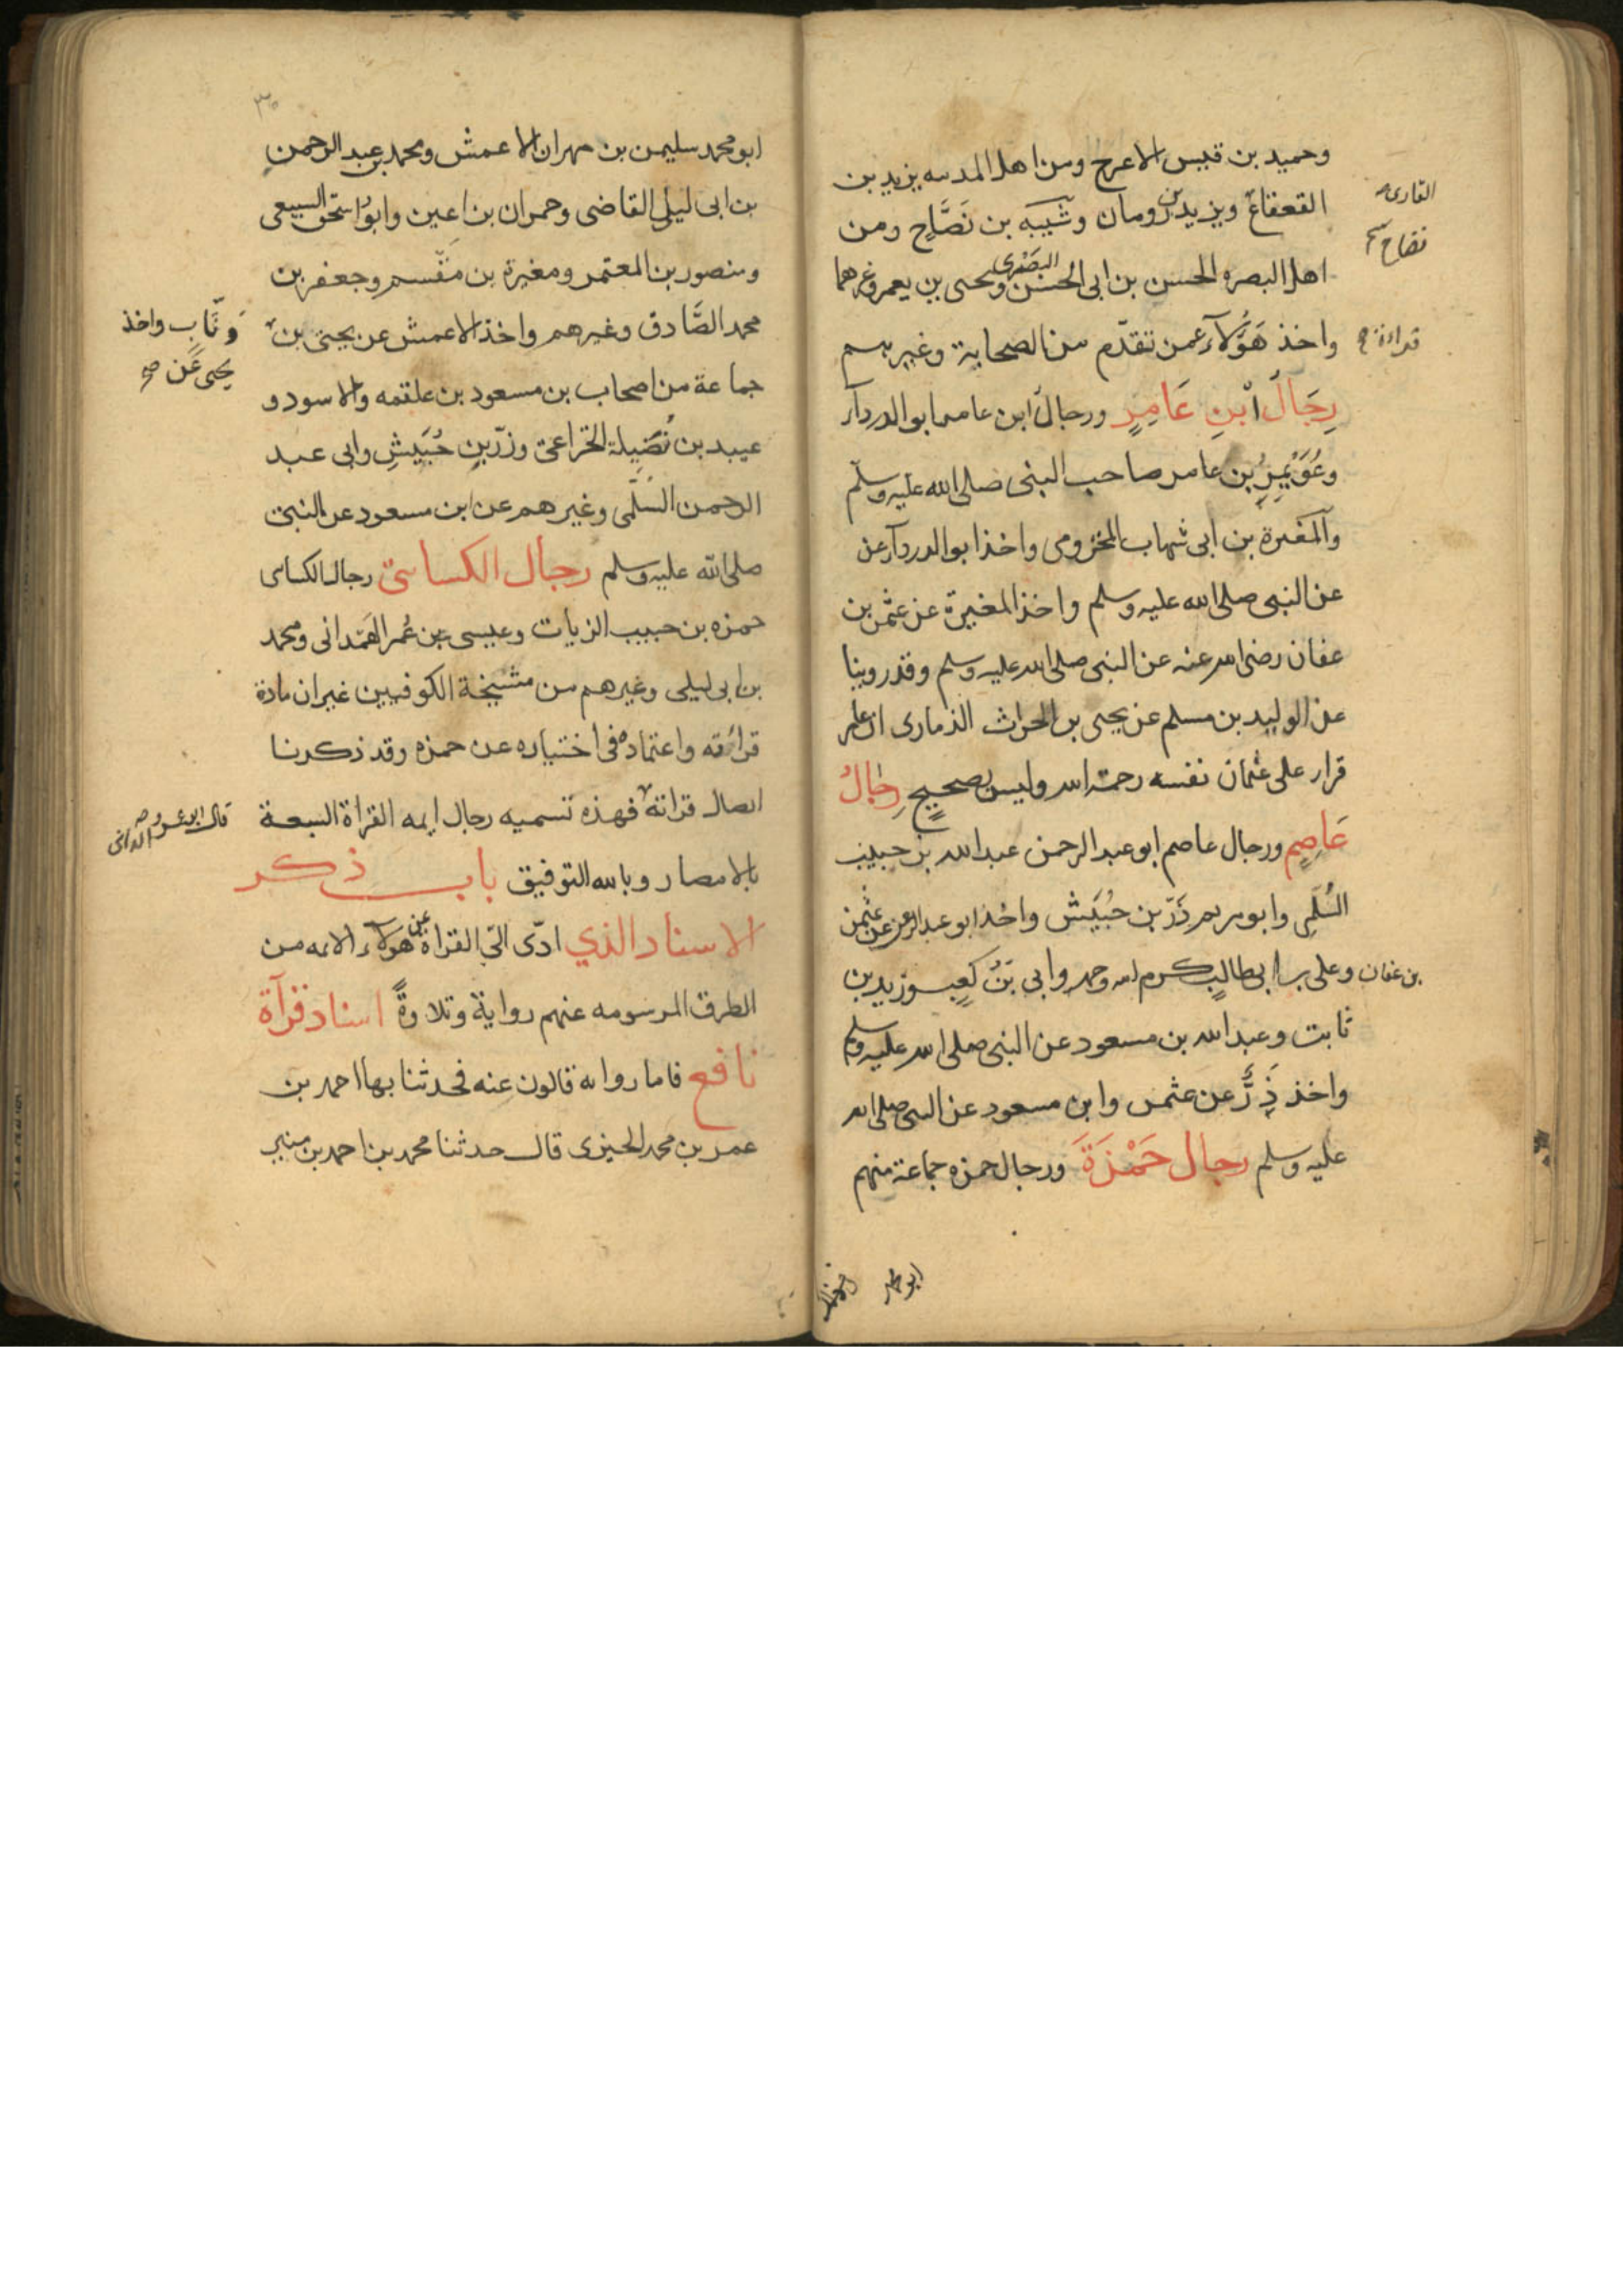 وحميد بن قيس الاعرج ومن اهل المدينه يزيد بن
القعقاع ويزيد بن رومان وشيبه بن نَصَّاح ومن
القارى
نصاح
اهل البصره الحسن بن ابى الحسن البصرى ويحيى بن يعمر وغيرهما
واخذ هَؤُلآء عمن تقدّم من الصحابة وغيرهم
قراءة
رِجَالُ ابْنِ عَامِرٍ ورجال ابن عامر ابو الدردآء
وعُوَيْمِرُ بن عامر صاحب النبى صلى الله عليه وسلم
وآلمغيرة بن ابى شهاب المخزومى واخذ ابو الدردآء عن
عن النبى صلى الله عليه وسلم واخذ المغيرة عن عثمن بن
عفان رضى الله عنه عن النبى صلى الله عليه وسلم وقد روينا
عن الوليد بن مسلم عن يحيى بن الحراث الذمارى ان عامر
قرا على عثمان نفسه رحمة الله وليس بصحيحٍ رِجَالُ
عَاصِمٍ ورجال عاصم ابو عبد الرحمن عبد الله بن حبيب
السُّلَمِى وابو مريم زَرّ بن حُبَيَش واخذ ابو عبد الرحمن عن عثمن
بن عفان وعلى بن ابى طالب كرم الله وجهه وابى بن كعبٍ وزيد بن
ثابت وعبد الله بن مسعود عن النبى صلى الله عليه وسلم
واخذ ذِرٌّ عن عثمن وابن مسعود عن النبى صلى الله
عليه وسلم رجال حَمْزَةَ ورجال حمزه جماعة منهم
ابو محمد
٣٠
ابو محمد سليمن بن مهران الاعمش ومحمد بن عبد الرحمن
بن ابى ليلى القاضى وحمران بن اعين وابو اسحق السبيعى
ومنصور بن المعتمر ومغيرة بن مقْسم وجعفر بن
محمد الصَّادق وغيرهم واخذ الاعمش عن يحيى بن
وثَّاب واخذ
يحيى عَن صح
جماعة من اصحاب بن مسعود بن علقمه والاسود و
عبيد بن نُضَيلة الخزاعى وزرّ بن حُبَيشِ وابى عبد
الرحمن السُّلَمى وغيرهم عن ابن مسعود عن النبى
صلى الله عليه وسلم رجال الكسائىّ رجال الكساى
حمزه بن حبيب الزيات وعيسى بن عُمر الهَمْدانى ومحمد
بن ابى ليلى وغيرهم من مشيخة الكوفيين غير ان مادة
قرائته واعتماده فى اختياره عن حمزه وقد ذكرنا
اتصال قراته فهذه تسميه رجال ايمه القراة السبعة
قال ابو عمرو الدانى
بالامصار وبالله التوفيق باب ذكر
الاسناد الذي ادّى الىّ القراة عن هولآء الائمه من
الطرق المرسومه عنهم رواية وتلاوةً اسناد قرآة
نافع فاما روايه قالون عنه فحدثنا بها احمد بن
عمر بن محمد الجيزى قال حدثنا محمد بن احمد بن منير